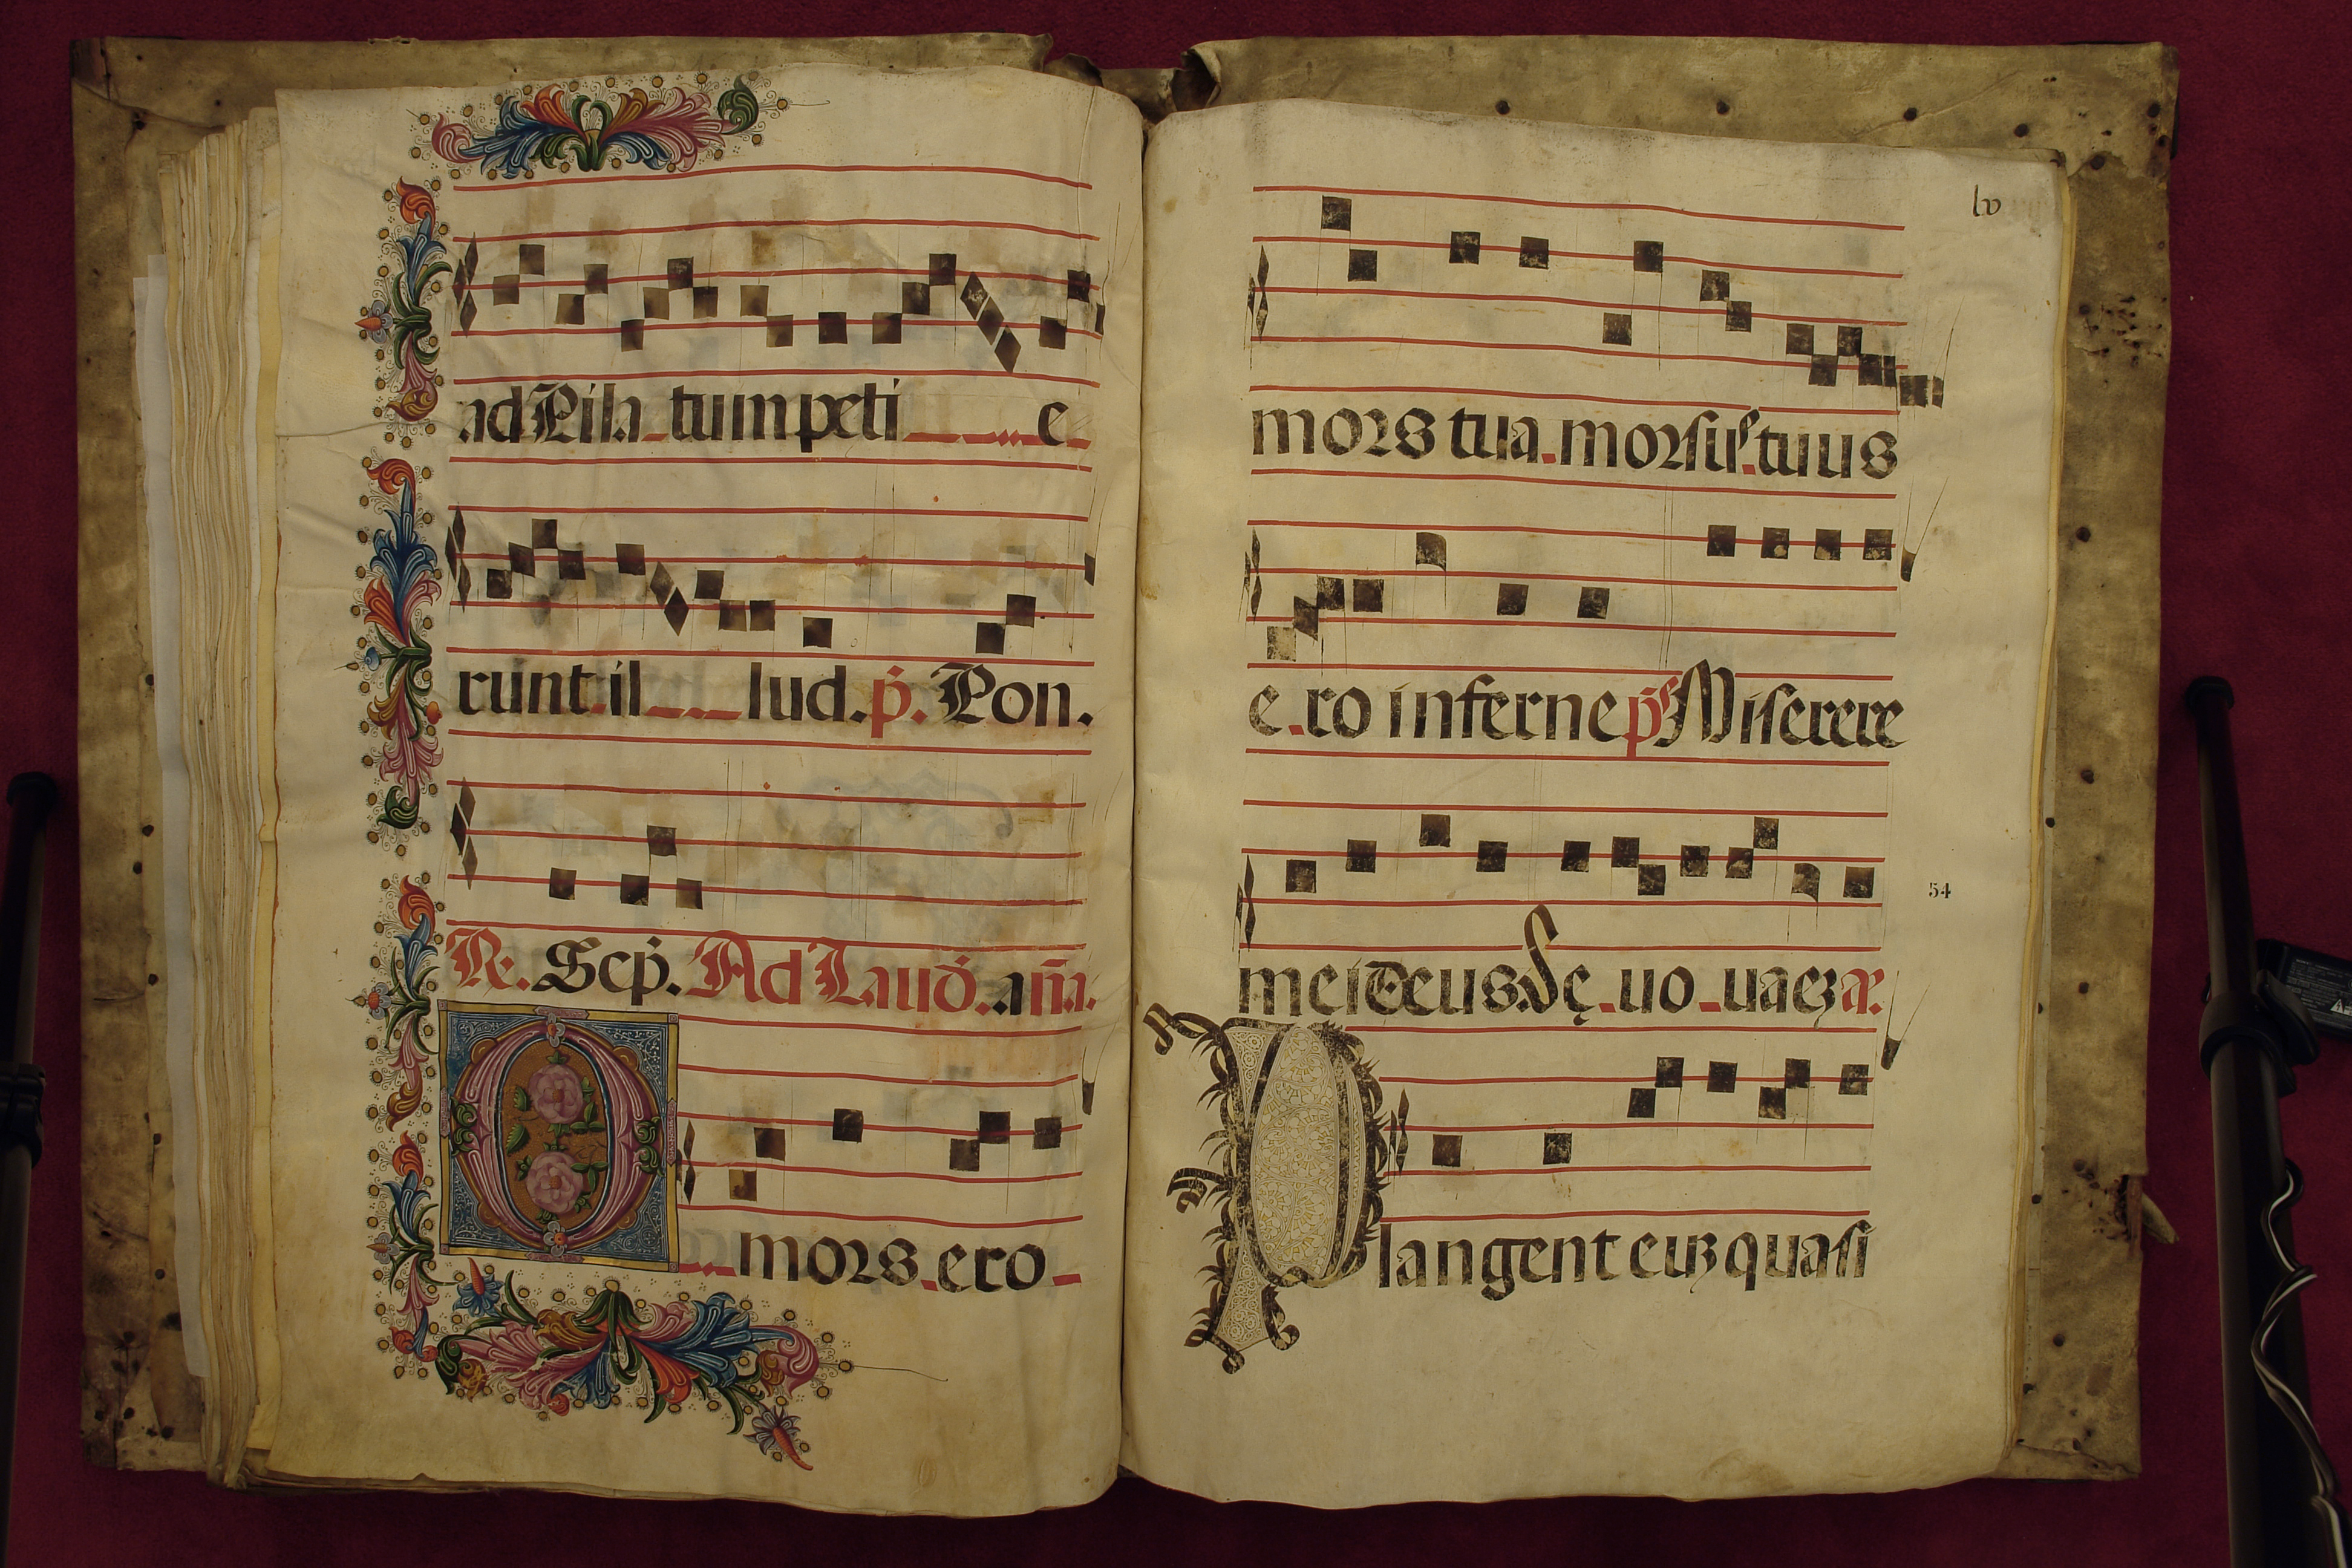 ad Pila tum peti e
runt il lud. p̄. Pon.
R̄. Scp̄. Ad Laud̄. an̄a.
O mors ero
lv
mors tua. morsus tuus
e ro inferne pſ Miserere
mei deus. Sę uo uaeȝ a͞r.
54
Plangent euȝ quasi